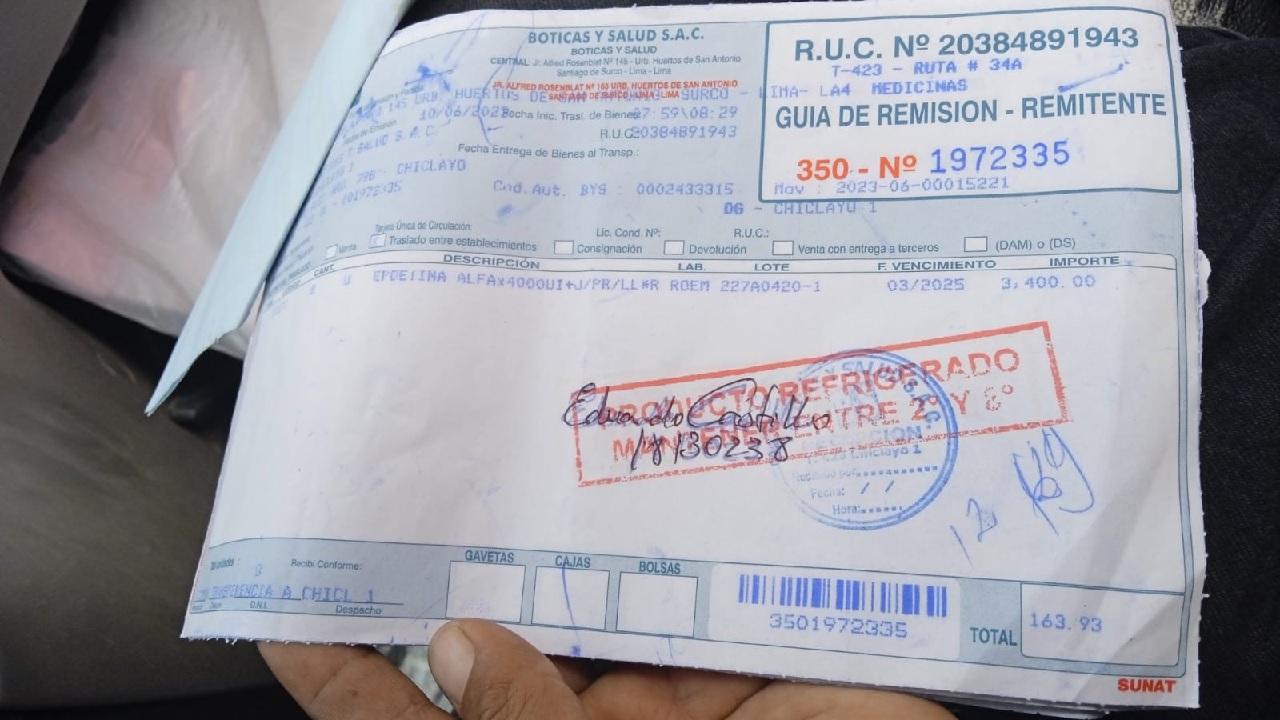 BOTICAS Y SALUD S.A.C.
BOTICAS Y SALUD
CENTRAL: Jr. Alfred Rosenblat Nº 145 - Urb. Huertos de San Antonio
Santiago de Surco - Lima - Lima
JR. ALFRED ROSENBLAT Nº 165 URB. HUERTOS DE SAN ANTONIO
SANTIAGO DE SURCO - LIMA - LIMA
R.U.C. Nº 20384891943
T-423 - RUTA # 34A
LIMA- LA4 MEDICINAS
GUIA DE REMISION - REMITENTE
350 - Nº 1972335
Mov : 2023-06-00015221
DG - CHICLAYO 1
145 URB. HUERTOS DE SAN SURCO -
10/06/2023 Fecha Inic. Tras. de Bienes: 59\08:29
SALUD S.A.C. R.U.C. 20384891943
Fecha Entrega de Bienes al Transp.:
798- CHICLAYO
001972335 Cod.Aut. BYS : 0002433315
Tarjeta Única de Circulación: Lic. Cond. Nº: R.U.C.:
Venta Traslado entre establecimientos Consignación Devolución Venta con entrega a terceros (DAM) o (DS)
CANT. DESCRIPCIÓN LAB. LOTE F. VENCIMIENTO IMPORTE
U EPOETINA ALFAx4000UI+J/PR/LL*R ROEM 227A0420-1 03/2025 3,400.00
PRODUCTO REFRIGERADO
MANTENER ENTRE 2º Y 8º
Eduardo Castillo
18130238
SALUD S.A.C.
RECEPCION
Chiclayo 1
Recibido por:
Fecha: / /
Hora:
12 Kg
Recibi Conforme:
TRANSFERENCIA A CHICL 1
D.N.I. Despacho
GAVETAS CAJAS BOLSAS
3501972335
TOTAL 163.93
SUNAT